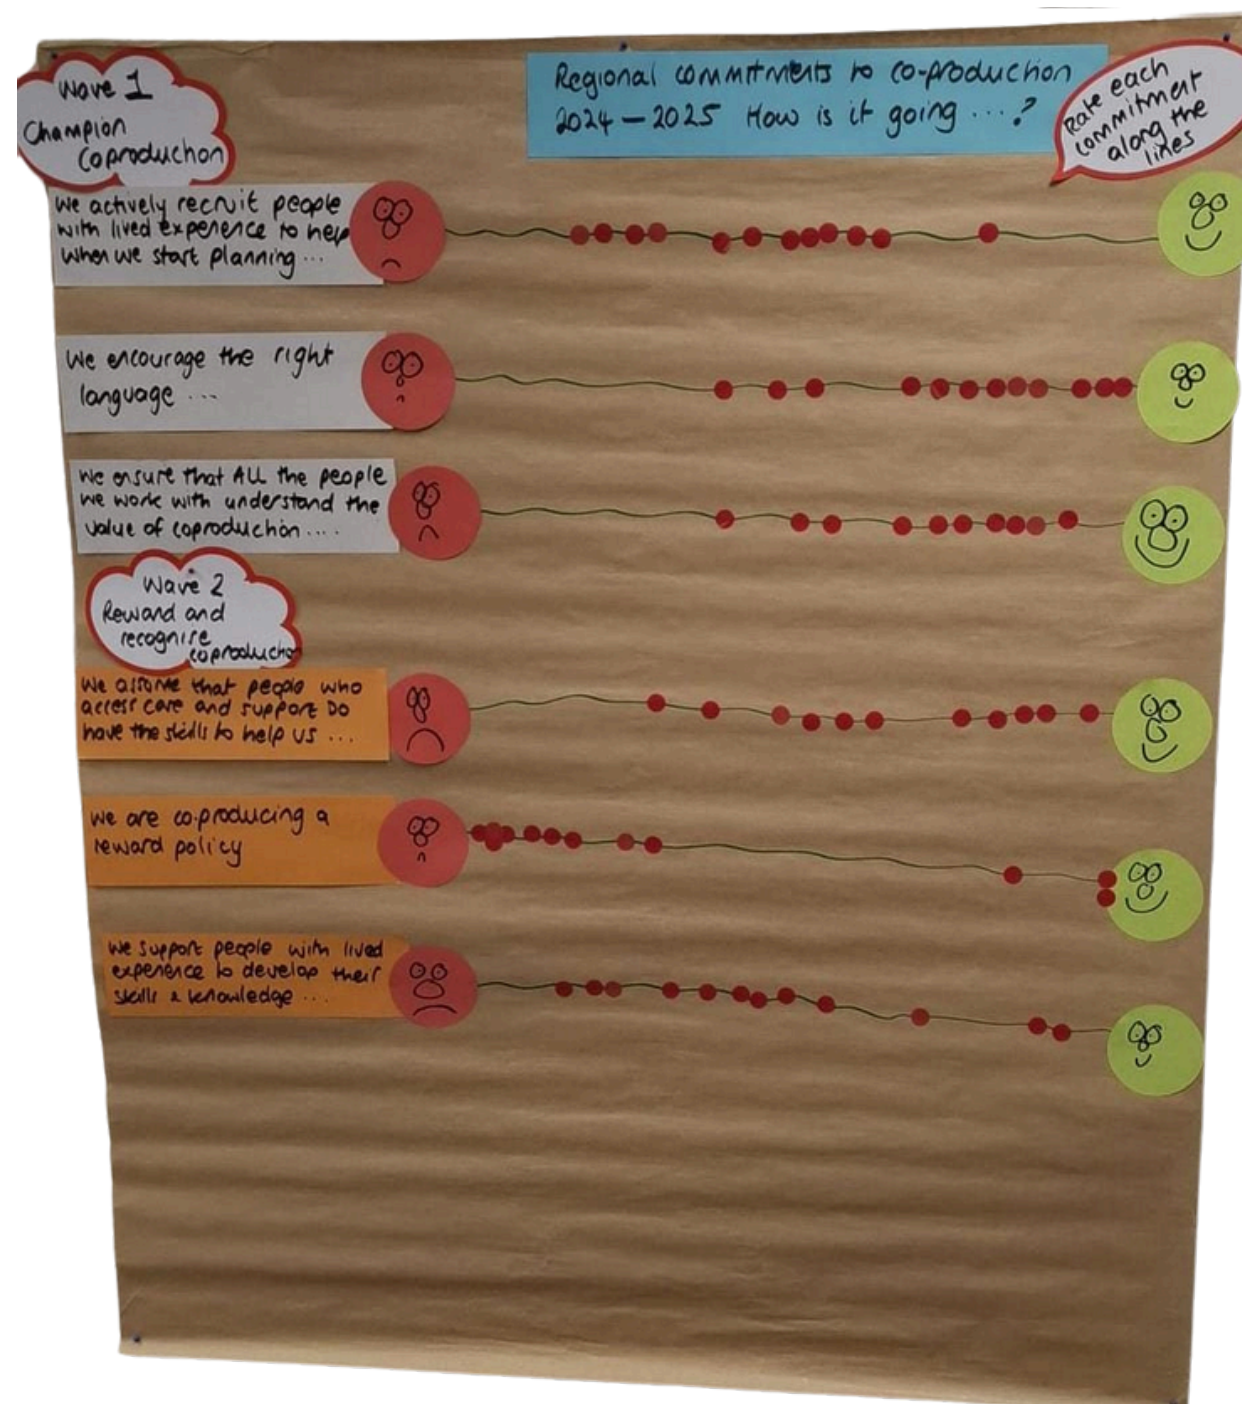 Wave 1
Champion
Coproduction
Regional commitments to co-production
2024 - 2025 How is it going ...?
Rate each
commitment
along the
lines
We actively recruit people
with lived experience to help
when we start planning ...
We encourage the right
language ...
We ensure that ALL the people
we work with understand the
value of coproduction ....
Wave 2
Reward and
recognise
coproduction
We assume that people who
access care and support DO
have the skills to help us ...
We are co-producing a
reward policy
We support people with lived
experience to develop their
skills & knowledge ...